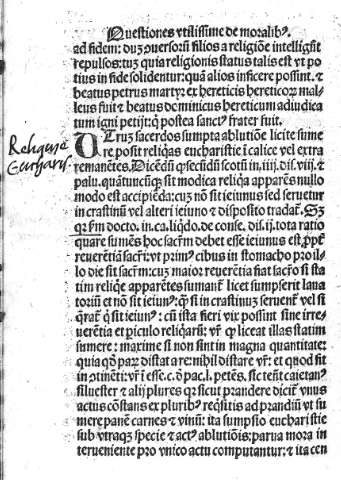 Questiones vtilissime de moralibꝰ.
ad fidem: duꝫ ꝯuersoꝝ filios a religiõe intelligit̃
repulsos: tuꝫ quia religionis status talis est vt po
tius in fide solidentur: quã alios inficere possint. ⁊
beatus petrus martyꝛ ex hereticis hereticoꝝ mal-
leus fuit ⁊ beatus dominicus hereticum adiudica
tum igni petijt: ꝙ postea sanctꝰ frater fuit.
Religiẽ
Eucharis
UTruꝫ sacerdos sumpta ablutiõe licite sume
re possit reliq̃as eucharistie ĩ calice vel extra
remanẽtes. Dicẽdũ ꝙ secũdũ scotũ in .iiij. dis. viij. ⁊
palu. quãtuncũqꝫ sit modica reliq̃a apparẽs nullo
modo est accipiẽda: cuꝫ nõ sit ieiunus sed seruetur
in crastinũ vel alteri ieiuno ⁊ disposito tradat̃. Sꝫ
qꝛ ẽm docto. in. ca. liq̃do. de conse. dis. ij. tota ratio
quare sumẽs hoc sacr̃m debet esse ieiunus est, ꝓpt̃
reuerẽtiã sacr̃i: vt primꝰ cibus in stomacho pro il-
lo die sit sacr̃m: cuꝫ maior reuerẽtia fiat sacr̃o si sta
tim reliq̃e apparẽtes sumant̃ licet sumpserit laua
toriũ et nõ sit ieiunꝰ: ꝙ si in crastinuꝫ seruent̃ vel si
q̃rat̃ q̃ sit ieiunꝰ: cũ ista fieri vix possint sine irre-
uerẽtia et ꝑiculo reliq̃arũ: vr̃ ꝙ liceat illas statim
sumere: maxime si non sint in magna quantitate:
quia qð paꝝ distat a re: nihil distare vr̃: et quod sit
in ꝯtinẽti: vr̃ ĩ esse. c. ð pac. l. petẽs. sic tenẽt caietanꝰ
siluester ⁊ alij plures qꝛ sicut prandere dicit̃ vnus
actus cõstans ex pluribꝰ req̃sitis ad prandiũ vt su
mere panẽ carnes ⁊ vinũ: ita sumpsio eucharistie
sub vtraqꝫ specie ⁊ actꝰ ablutiõis: parua mora in
terueniente pro vnico actu computantur: ⁊ ita cen